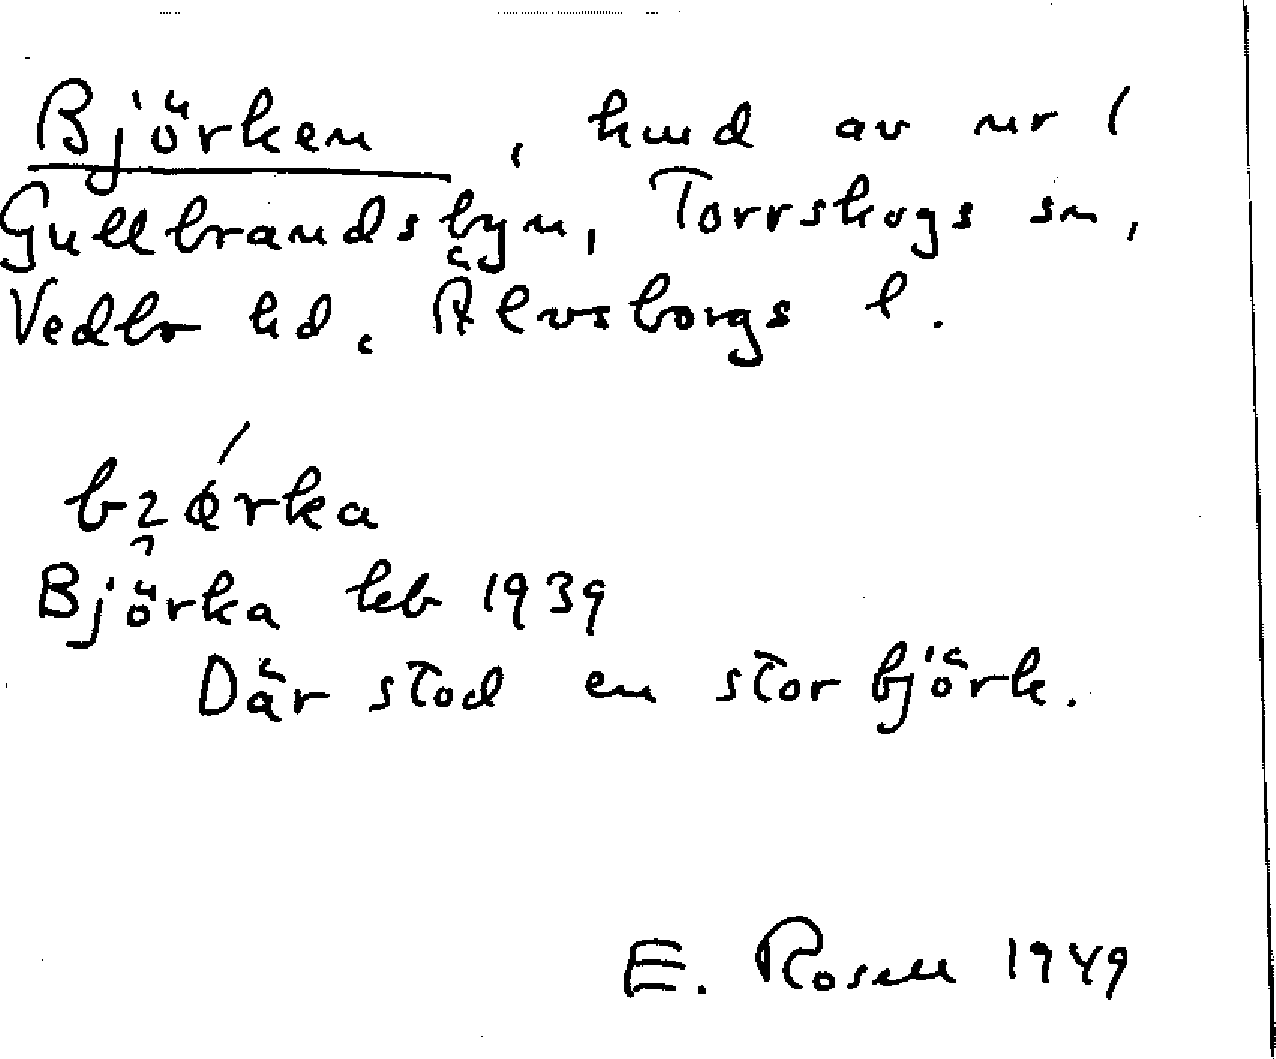 Björken, hmd av nr 1
Gullbrandsbyn, Torrskogs sn,
Vedbo hd, Älvsborgs l.
Björka kb 1939
Där stod en stor björk.
E. Rosell 1949